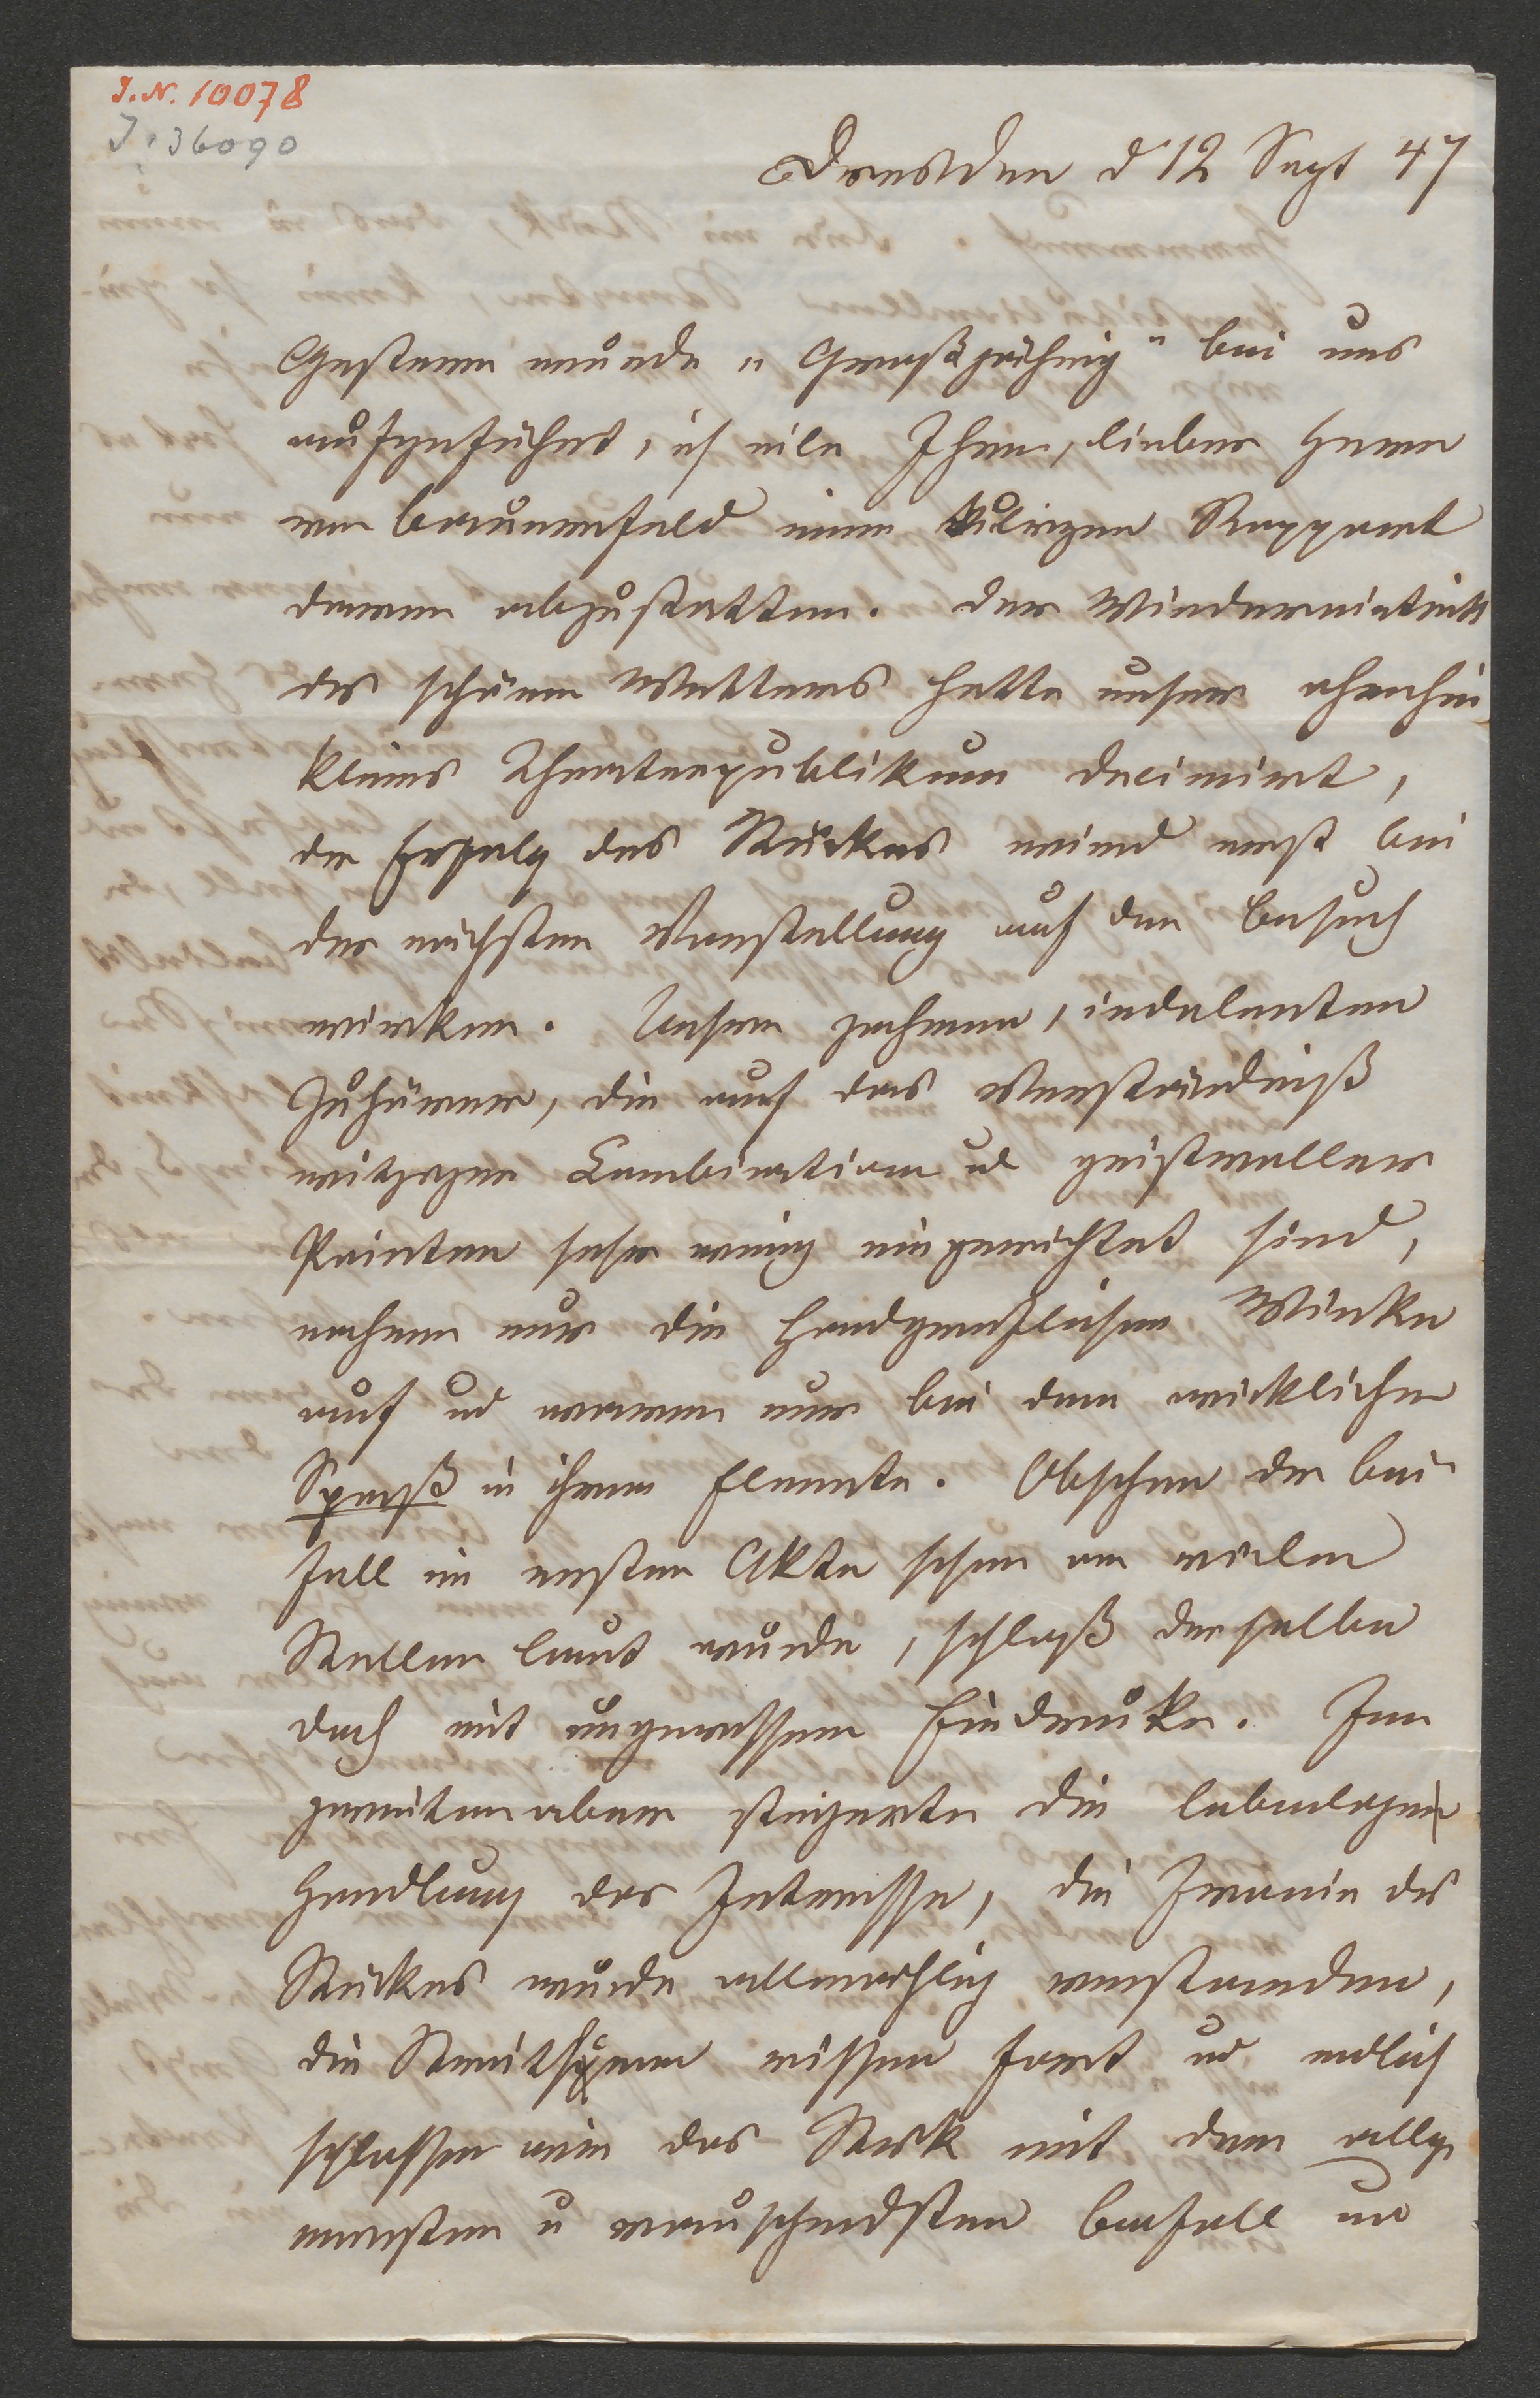 I.N. 10078
J: 36090
Dresden d 12 Sept 47
Gestern wurde „Großjährig" bei uns
aufgeführt, ich eile Ihnen, lieber Herr
von Bauernfeld einen kurzen Rapport
davon abzustatten. Der Wiedereintritt
des schönen Wetters hatte unser ohnehin
kleines Theaterpublikum decimirt,
der Erfolg des Stückes wird erst bei
der nächsten Vorstellung auf den Besuch
wirken. Unsere zahmen, indolenten
Zuhörer, die auf das Verständniß
witziger Combination u geistvoller
Pointen sehr wenig eingerichtet sind,
nehmen nur die handgreiflichen Winke
auf und waren nur bei dem wirklichen
Spaß in ihrem Elemente. Obschon der Bei¬
fall im ersten Akte schon an vielen
Stellen laut wurde, schloß derselbe
doch mit ungewissem Eindrucke. Im
zweiten aber steigerte die lebendigere
Handlung das Interesse, die Ironie des
Stückes wurde allmählig verstanden,
die Streitszene rissen fort und endlich
schlossen wir das Stück mit dem allge
meinsten u rauschendsten Beifall und